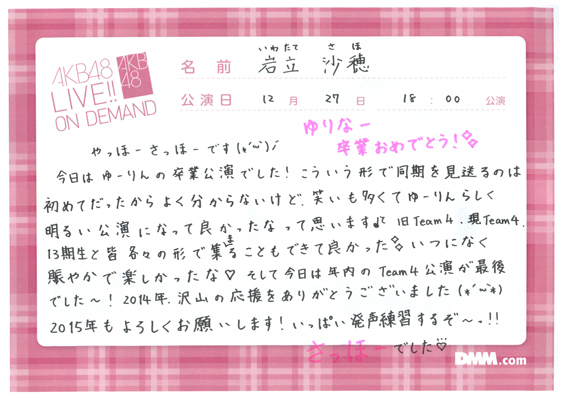 AKB48
LIVE!!
ON DEMAND
AKB
48
いわたて さほ
名前 岩立 沙穂
公演日 12月 27日 18:00 公演
ゆりなー
卒業おめでとう!
やっほーさっほーです(*'ω'*)ノ
今日はゆーりんの卒業公演でした!こういう形で同期を見送るのは
初めてだったからよく分からないけど、笑いも多くてゆーりんらしく
明るい公演になって良かったなって思います♪ 旧Team4、現Team4、
13期生と皆各々の形で集まることもできて良かった いつになく
賑やかで楽しかったな♡ そして今日は年内のTeam4公演が最後
でした〜!2014年、沢山の応援をありがとうございました(*'ω'*)
2015年もよろしくお願いします!いっぱい発声練習するぞ〜-!!
さっほーでした♡
DMM.com